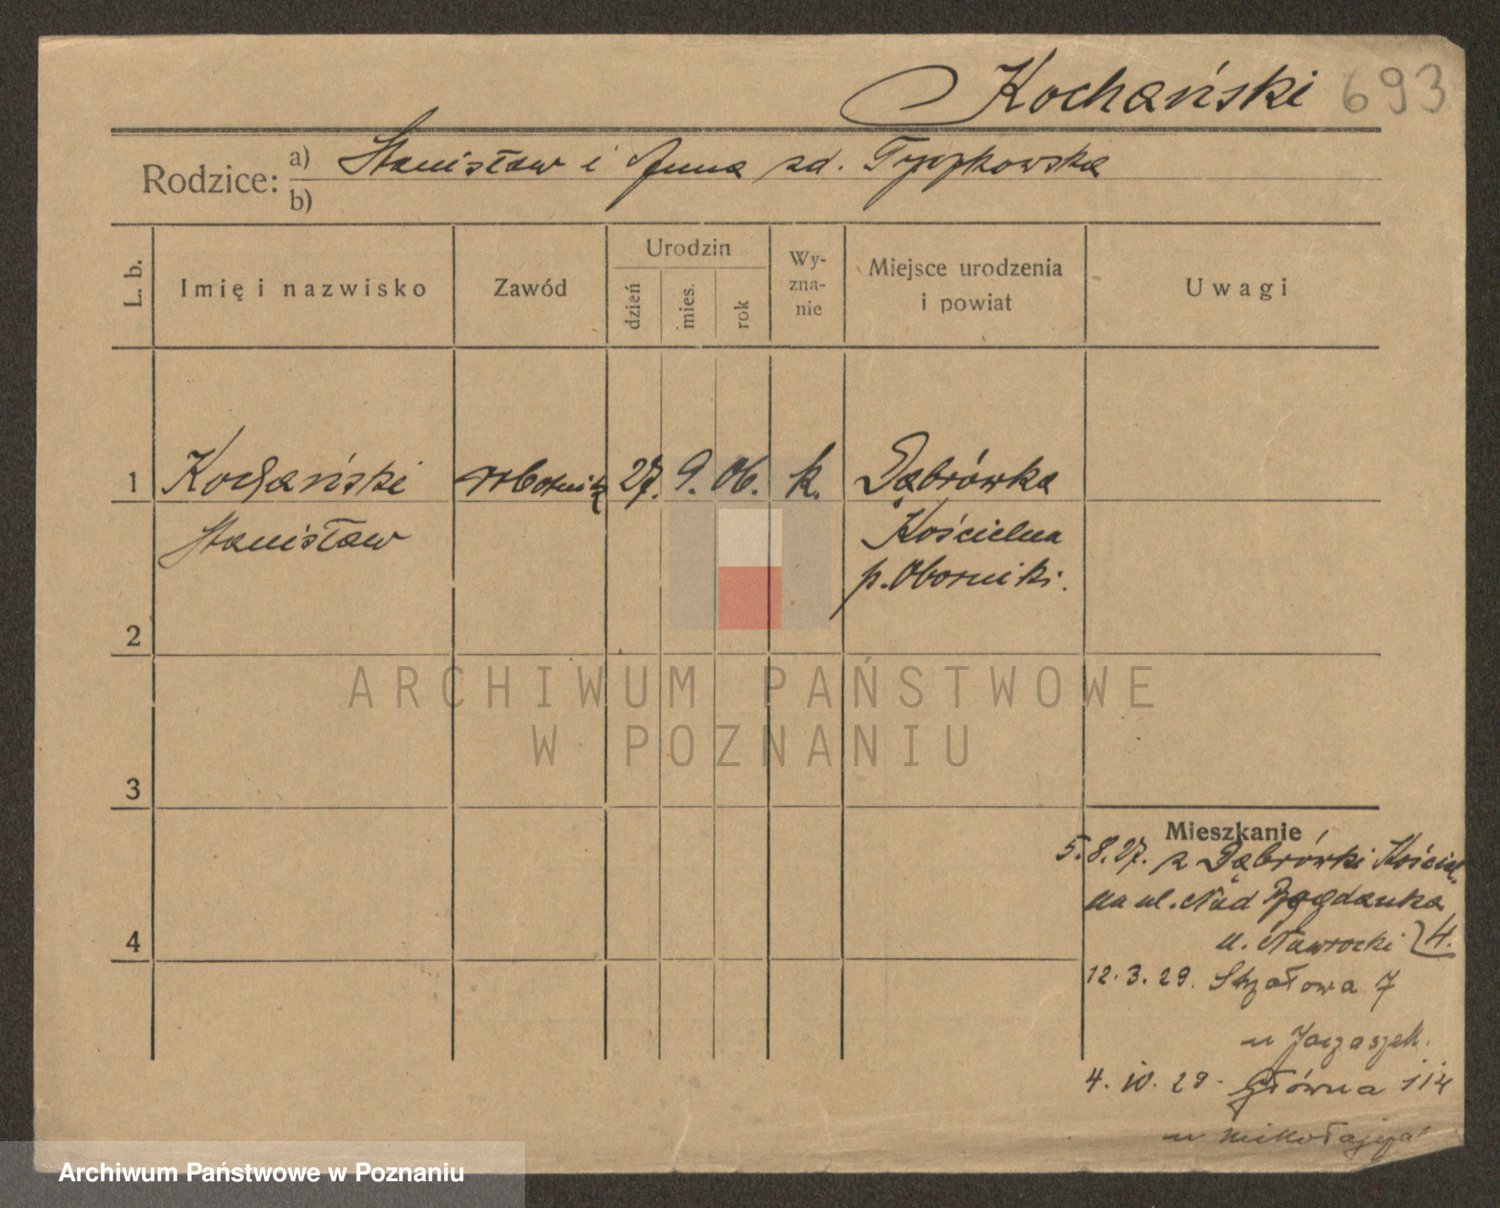 Kochański 693
Rodzice: a) Stanisław i Anna zd.
b)
L. b.
Imię i nazwisko
Zawód
Urodzin
dzień
mies.
rok
Wy-
zna-
nie
Miejsce urodzenia
i powiat
Uwagi
1 Kochański robotnik 27. 9. 06. k. Dąbrówka
Stanisław Kościelna
p. Oborniki.
2
ARCHIWUM PAŃSTWOWE
W POZNANIU
3
Mieszkanie
5.8.27. z Dąbrówki Kościel.
na ul. Nad Bogdanka
u. Nawrocki 4.
4
12.3.29. Strzałowa 7
u
4. 10. 29. Główna 114
u
Archiwum Państwowe w Poznaniu